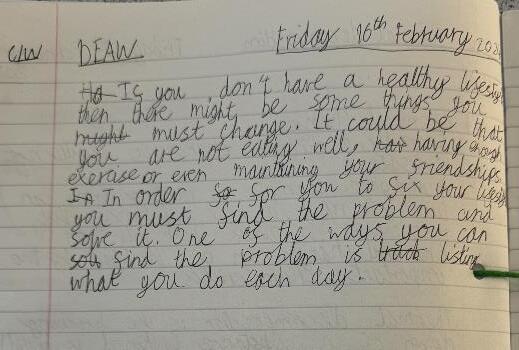 C/W DEAW Friday 16th February 202
If you don't have a healthy lifestyl
then there might be some things you
might must change. It could be that
you are not eating well, having enough
exercise or even maintaining your friendships.
In In order for for you to fix your lifestyle
you must find the problem and
solve it. One of the ways you can
find the problem is track listing
what you do each day.